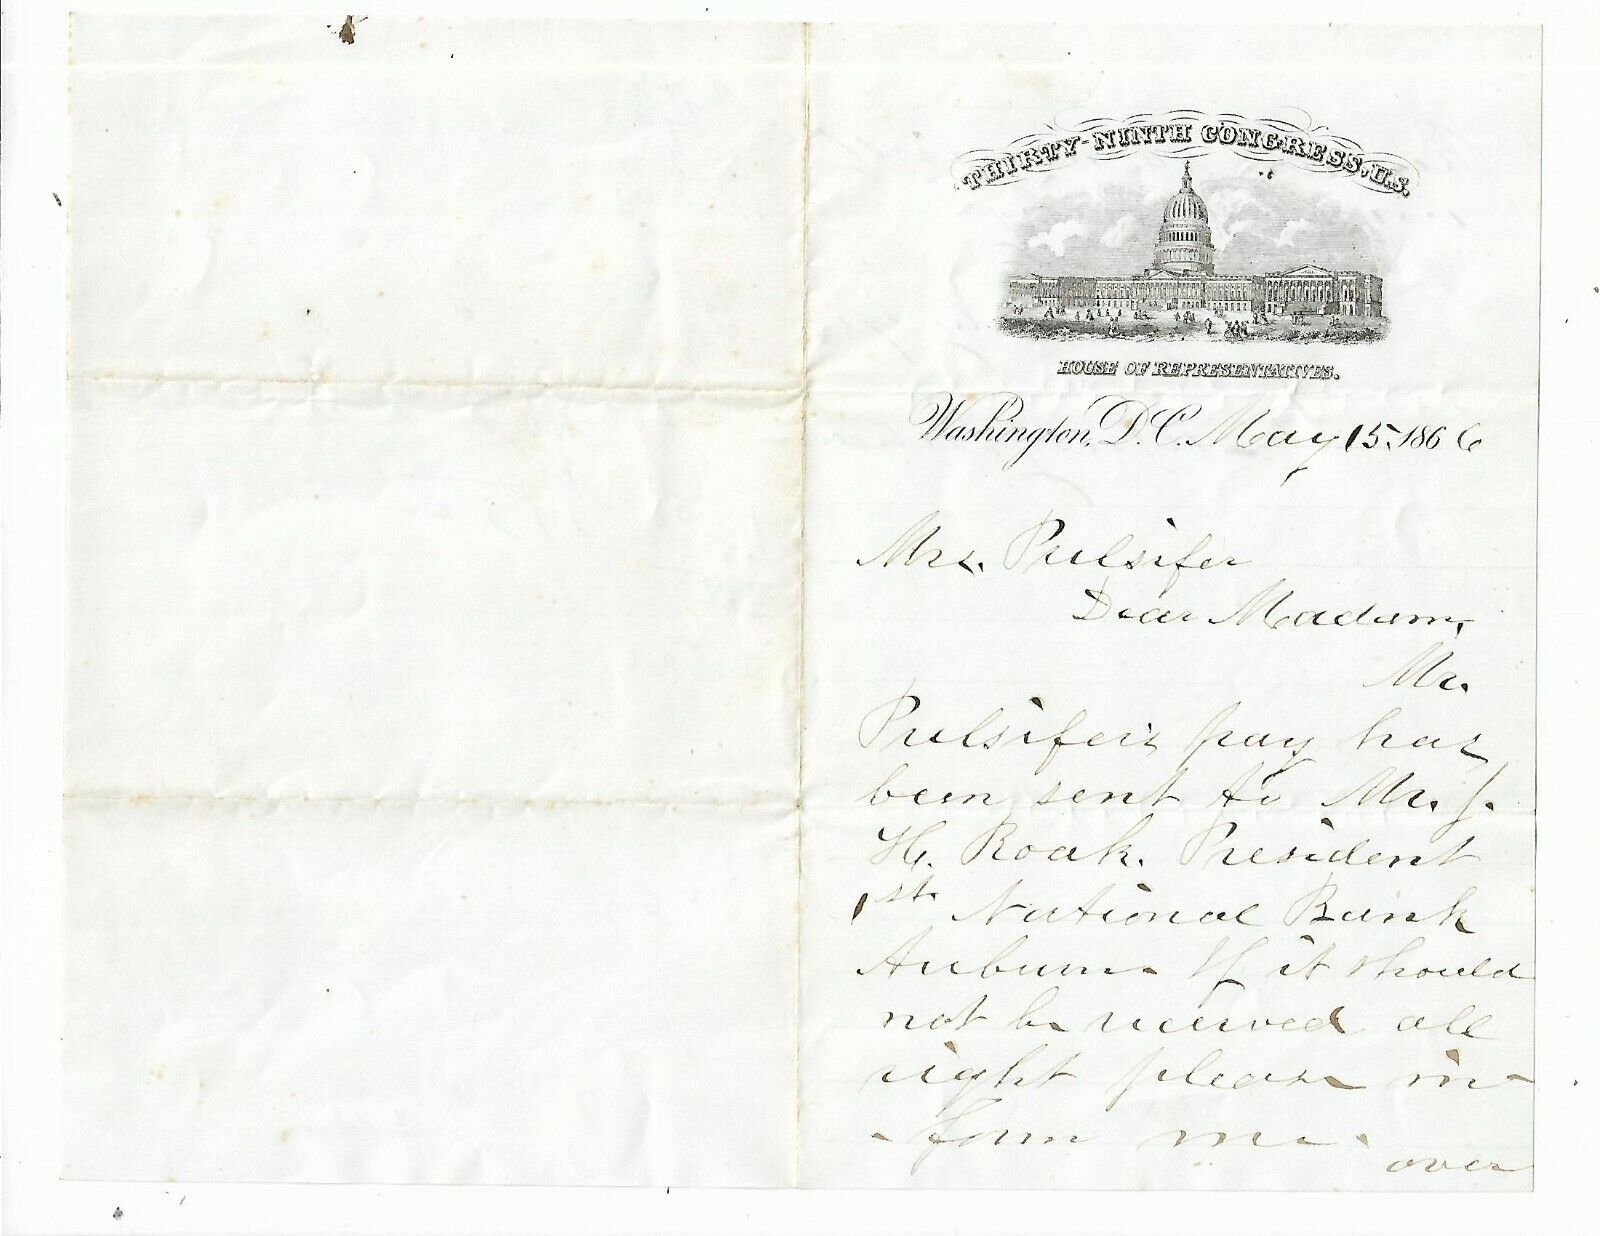 THIRTY-NINTH CONGRESS, U.S.
HOUSE OF REPRESENTATIVES.
Washington, D.C. May 15, 1866
Mrs. Pulsifer
Dear Madam,
Mr.
Pulsifer's pay has
been sent to Mr. J.
H. Roak. President
1st. National Bank
Auburn. If it should
not be received all
right please in-
-form me.
over